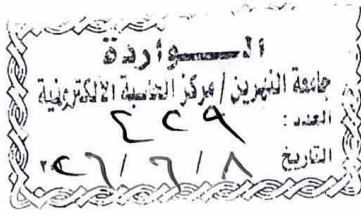 الـــواردة
جامعة النهرين / مركز الحاسبة الالكترونية
العدد : ٤٢٩
التاريخ ٨ / ٦ / ٢٠٢٦